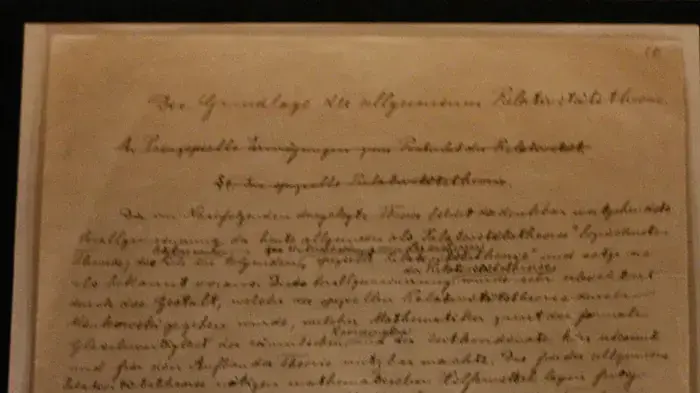 Die Grundlage der allgemeinen Relativitätstheorie.
A. Prinzipielle Erwägungen zum Postulat der Relativität.
§1. Die spezielle Relativitätstheorie.
Die im Nachfolgenden dargelegte Theorie bildet die denkbar weitgehendste
Verallgemeinerung der heute allgemein als "Relativitätstheorie" bezeichneten
Theorie; die
als bekannt voraus. Die Verallgemeinerung wurde sehr erleichtert
durch die Gestalt, welche der speziellen Relativitätstheorie durch
Minkowski gegeben wurde, welcher Mathematiker zuerst die formale
Gleichwertigkeit der räumlichen und der Zeitkoordinate klar erkannte
und für den Aufbau der Theorie nutzbar machte. Die für die allgemeine
Relativitätstheorie nötigen mathematischen Hilfsmittel lagen fertig